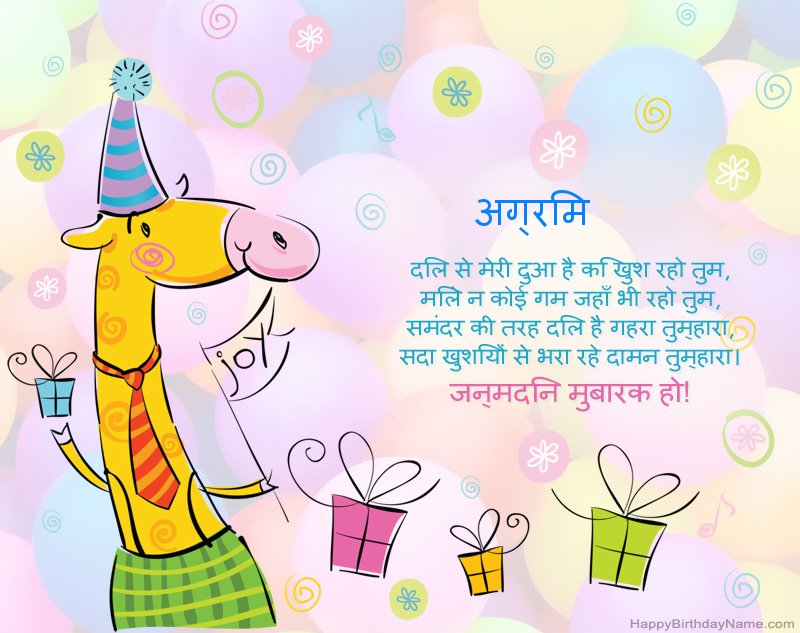 अग्रमि
दलि से मेरी दुआ है कि खुश रहो तुम,
मलिे न कोई गम जहाँ भी रहो तुम,
समंदर की तरह दलि है गहरा तुम्हारा,
सदा खुशयिों से भरा रहे दामन तुम्हारा।
जन्मदनि मुबारक हो!
joy
HappyBirthdayName.com